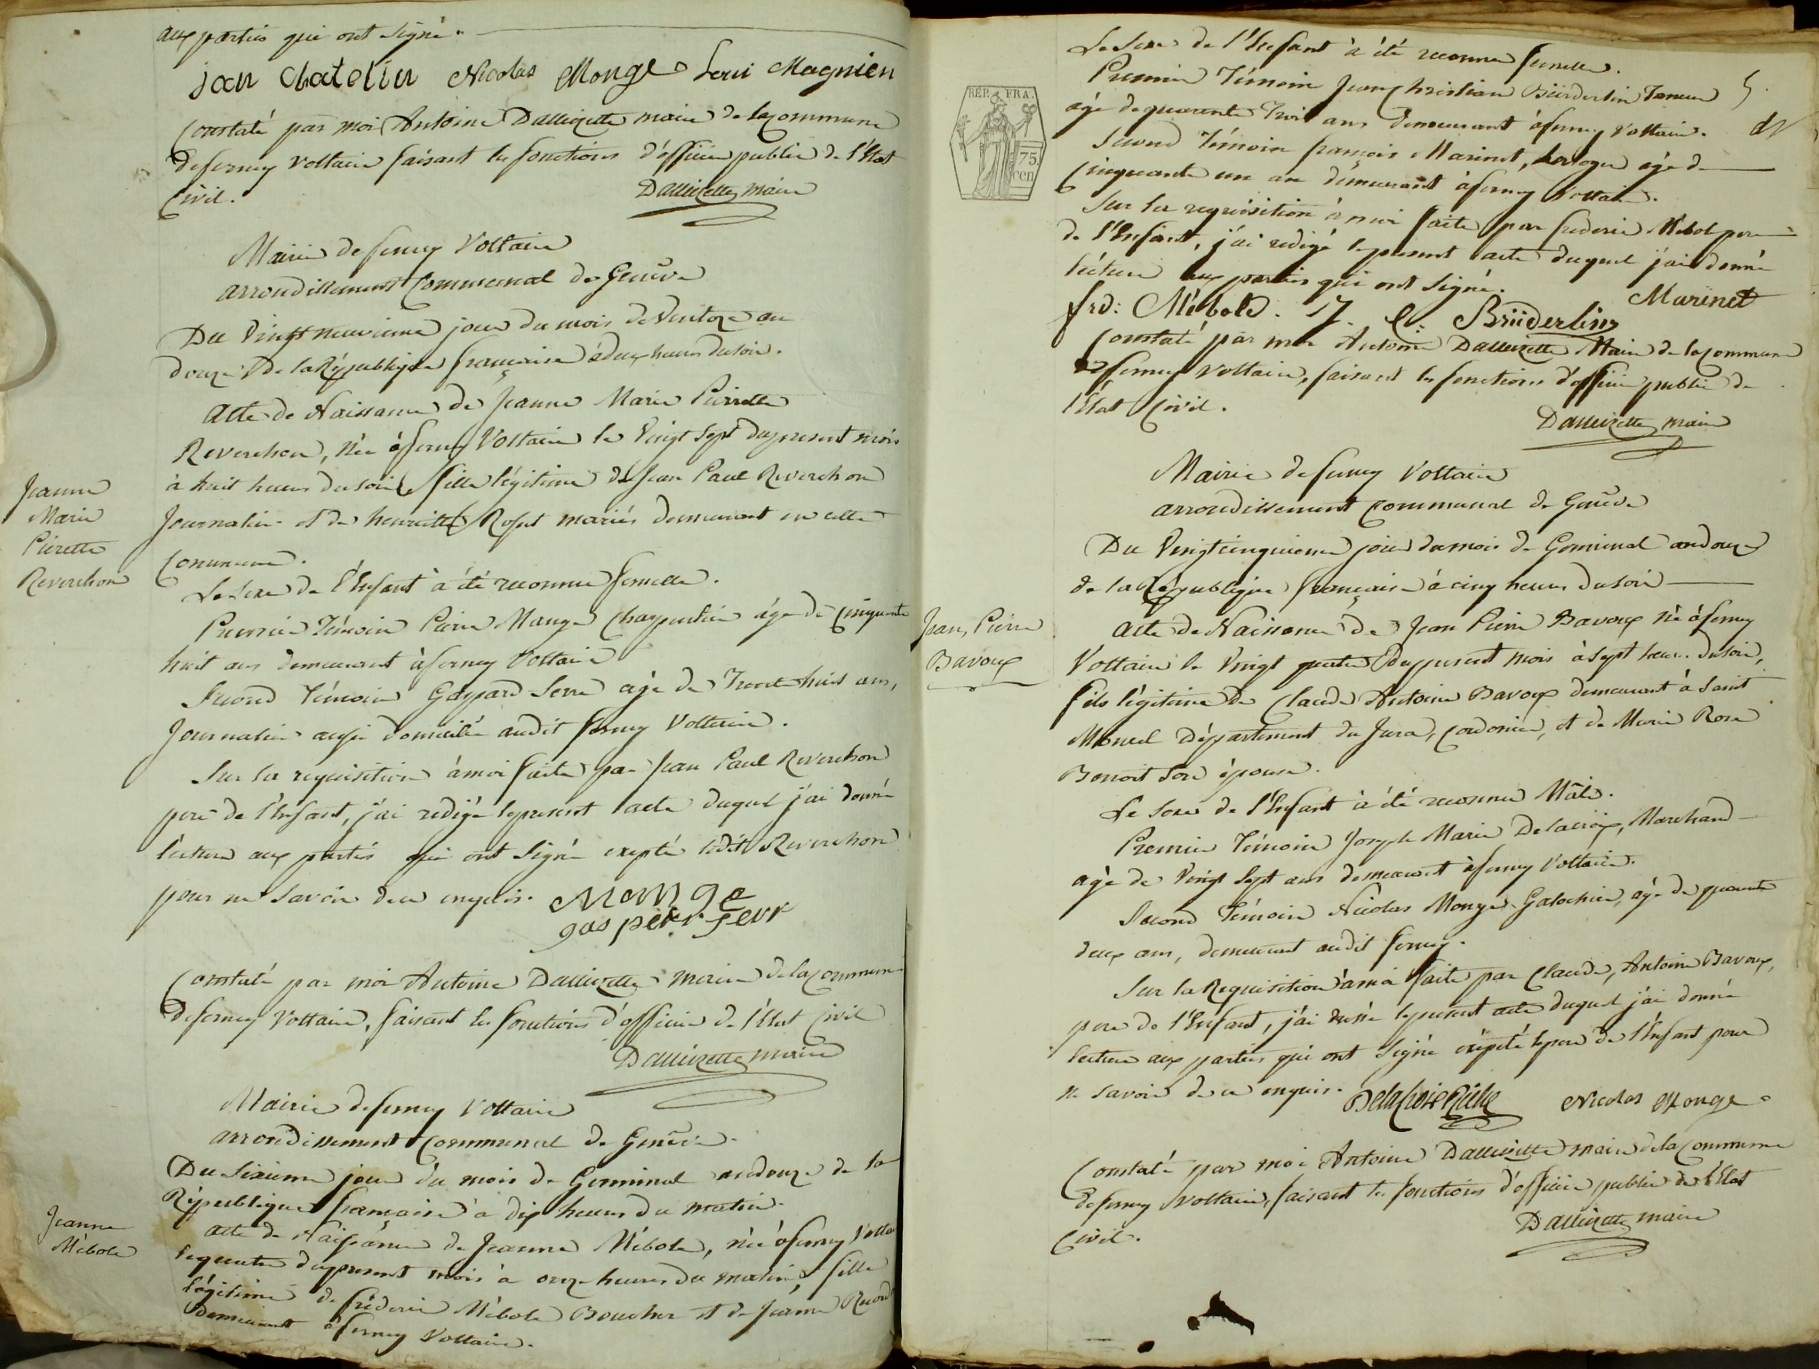 aux parties qui ont signé.
jan Chatelin Nicolas Monge Loui Magnien
Constaté par moi Antoine Dallizette maire de la commune
de ferney voltaire faisant les fonctions d'officier public de l'Etat
Civil.
Dallizette maire
Mairie de ferney Voltaire
arrondissement Communal de Genève
Du Vingt neuvieme jour du mois de Ventoze an
douze de la République française à deux heures du soir.
Acte de Naissance de Jeanne Marie Pierrette
Reverchon, née à ferney Voltaire le Vingt Sept du present mois
à huit heures du soir, fille légitime de Jean Paul Reverchon
Journalier et de henriette mariés demeurant en cette
Commune.
Le sexe de l'Enfant à été reconnu femelle.
Premier Témoin Pierre Mange Charpentier âgé de Cinquante
huit ans demeurant à ferney Voltaire
Second Témoin Gaspard Serre agé de Trente huit ans,
Journalier aussi domicilié audit ferney Voltaire.
Sur la requisition à moi faite par Jean Paul Reverchon
pere de l'Enfant, j'ai redigé le present acte duquel j'ai donné
lecture aux parties qui ont signé excepté ledit Reverchon
pour ne savoir de ce enquis. Mange
gasper
Constaté par moi Antoine Dallizette maire de la Commune
de ferney Voltaire, faisant les fonctions d'officier de l'Etat Civil
Dallizette maire
Jeanne
Marie
Pierette
Reverchon
Mairie de ferney Voltaire
arrondissement Communal de Genève.
Du Sixieme jour du mois de Germinal an douze de la
République francaise à dix heures du matin.
acte de Naissance de Jeanne Mébold, née à ferney Voltaire
le quatre du present mois à onze heures du matin, fille
légitime de fréderic Mébold Boucher et de Jeanne
demeurant à ferney Voltaire.
Jeanne
Mébold
Le Sexe de l'Enfant à été reconnu femelle.
Premier Témoin Jean Christian Brüderlin Tanneur
agé de quarante Trois ans demeurant à ferney Voltaire.
Second Témoin françois Marinet, horloger agé de
Cinquante un an demeurant à ferney Voltaire.
Sur la requisition à moi faite par frederic Mébold pere
de l'Enfant, j'ai redigé le present acte duquel j'ai donné
lecture aux parties qui ont signé.
frd: Mébold. J. C. Brüderlin Marinet
Constaté par moi Antoine Dallizette Maire de la Commune
de ferney Voltaire, faisant les fonctions d'officier public de
l'Etat Civil.
Dallizette maire
REP. FRA.
75
cen
5.
Mairie de ferney Voltaire
arrondissement Communal de Genève
Du Vingt cinquieme jour du mois de Germinal an douze
de la République française à cinq heures du soir
Acte de Naissance de Jean Pierre Bavoux né à ferney
Voltaire le Vingt quatre du present mois à sept heures du soir,
fils légitime de Claude Antoine Bavoux demeurant à Saint
Département du Jura, cordonier, et de Marie Rose
Benoit son épouse.
Jean, Pierre
Bavoux
Le sexe de l'Enfant à été reconnu Mâle.
Premier Témoin Joseph Marie Delacroix, Marchand
agé de Vingt Sept ans demeurant à ferney Voltaire.
Second Témoin Nicolas Monge Galochier, agé de quarante
deux ans, demeurant audit ferney.
Sur la Requisition à moi faite par Claude, Antoine Bavoux,
pere de l'Enfant, j'ai dressé le present acte duquel j'ai donné
lecture aux parties qui ont signé excepté le pere de l'Enfant pour
ne savoir de ce enquis. Nicolas Monge
Constaté par moi Antoine Dallizette maire de la Commune
de ferney Voltaire, faisant les fonctions d'officier public de l'Etat
Civil.
Dallizette maire